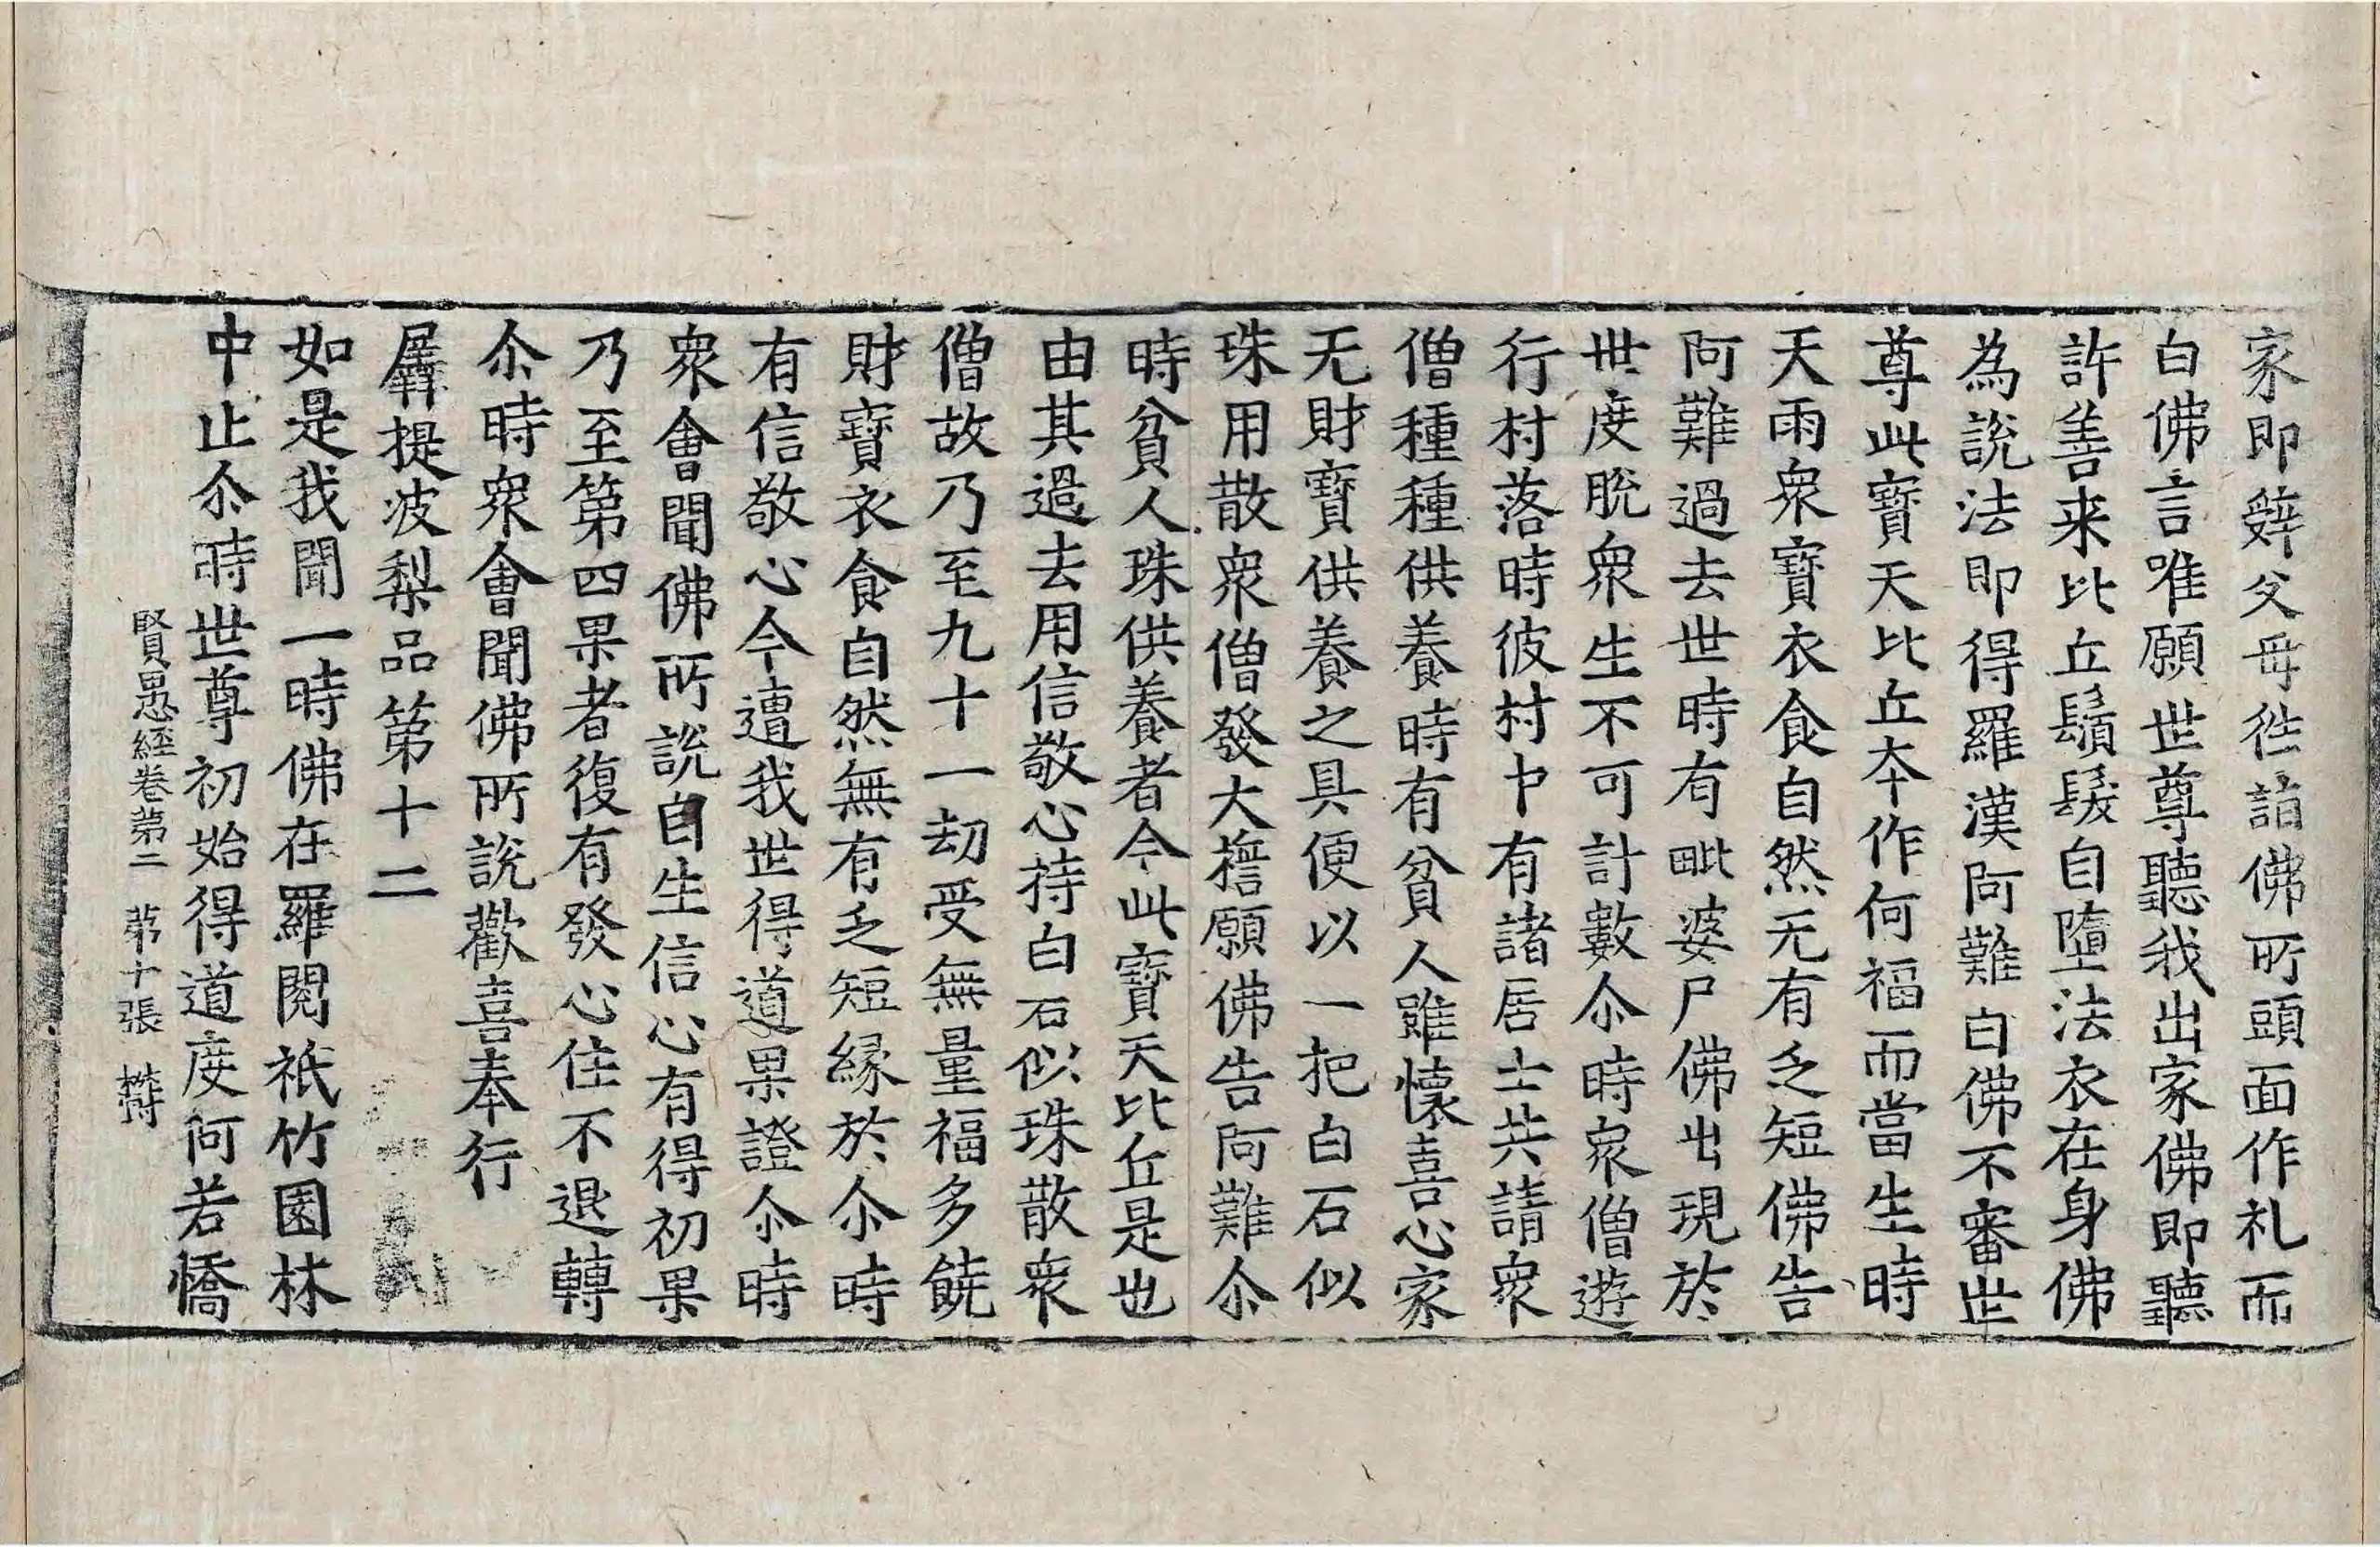 家即辤父母徃詣佛所頭面作礼而
白佛言唯願世尊聽我出家佛即聽
許善来比丘鬚髮自墮法衣在身佛
為說法即得羅漢阿難白佛不審世
尊此寳天比丘夲作何福而當生時
天雨衆寳衣食自然无有乏短佛告
阿難過去世時有毗婆尸佛出現於
世度脫衆生不可計數尒時衆僧遊
行村落時彼村中有諸居士共請衆
僧種種供養時有貧人雖懷喜心家
无財寳供養之具便以一把白石似
珠用散衆僧發大擔願佛告阿難尒
時貧人珠供養者今此寳天比丘是也
由其過去用信敬心持白石似珠散衆
僧故乃至九十一劫受無量福多饒
財寳衣食自然無有乏短緣於尒時
有信敬心今遭我世得道果證尒時
衆會聞佛所說自生信心有得初果
乃至第四果者復有發心住不退轉
尒時衆會聞佛所說歡喜奉行
羼提波梨品第十二
如是我聞一時佛在羅閱祇竹園林
中止尒時世尊初始得道度阿若憍
賢愚經卷第二　第十張